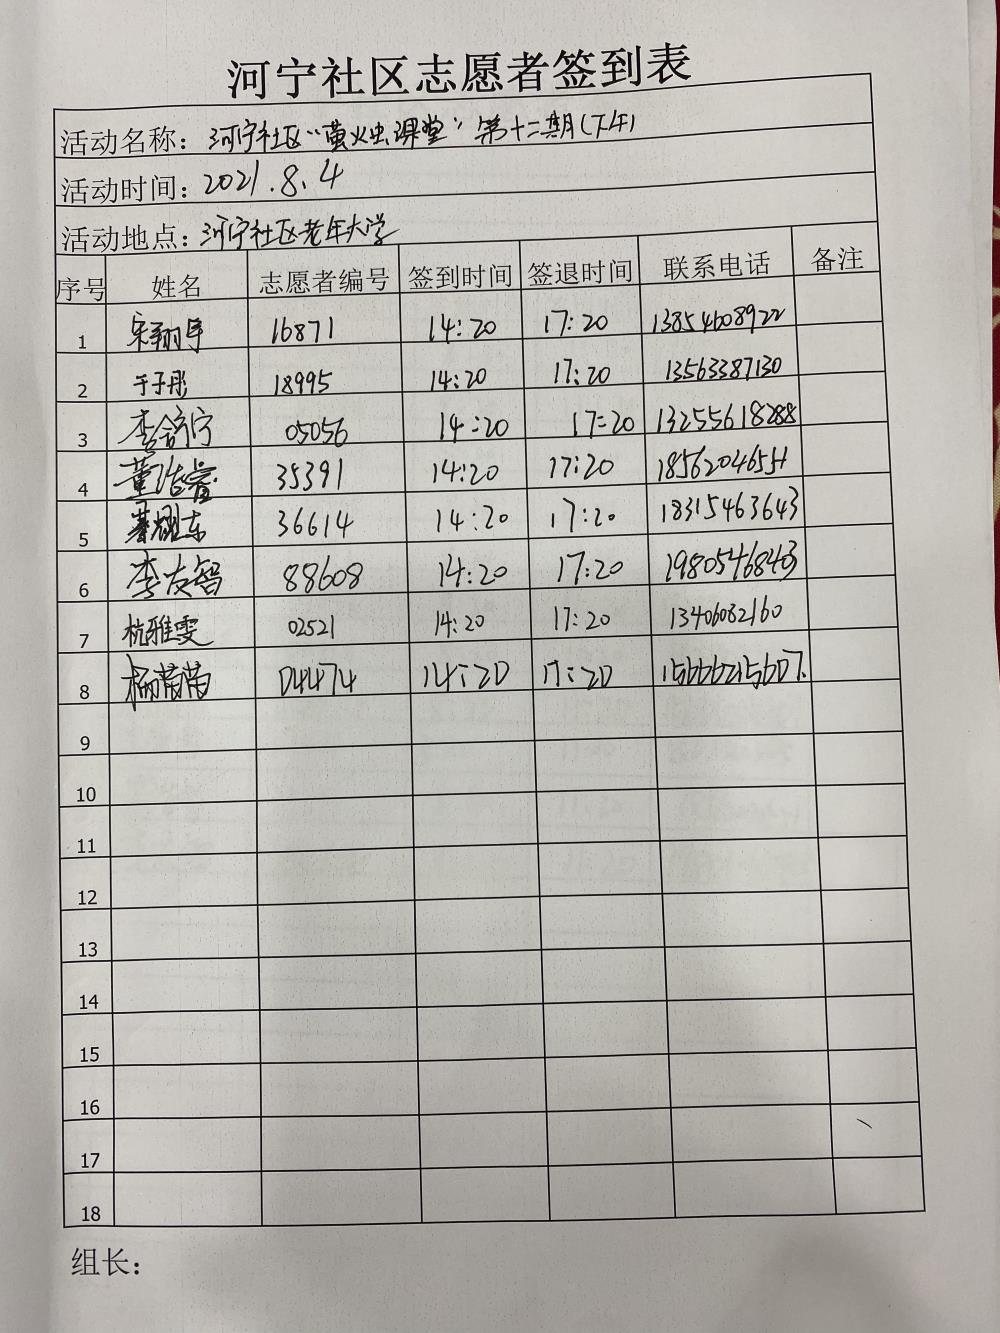 河宁社区志愿者签到表
活动名称：河宁社区“萤火虫课堂”第十二期(下午)
活动时间：2021.8.4
活动地点：河宁社区老年大学
序号 姓名 志愿者编号 签到时间 签退时间 联系电话 备注
1 宋翔宇 16871 14:20 17:20 13854608922
2 于子彤 18995 14:20 17:20 13563387130
3 李舒宁 05056 14:20 17:20 13255618288
4 董浩睿 35391 14:20 17:20
5 綦耀东 36614 14:20 17:20 18315463643
6 李友智 88608 14:20 17:20 19805468403
7 杭雅雯 02521 14:20 17:20 13406082160
8 杨苗苗 04474 14:20 17:20 15666215607.
9
10
11
12
13
14
15
16
17
18
组长：